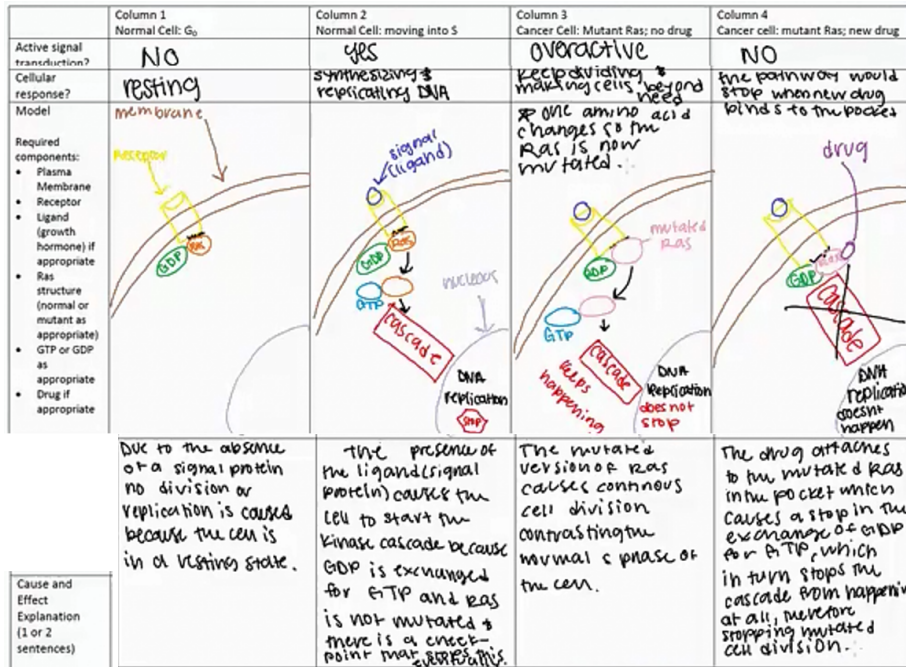 Column 1
Normal Cell: G₀
Column 2
Normal Cell: moving into S
Column 3
Cancer Cell: Mutant Ras; no drug
Column 4
Cancer cell: mutant Ras; new drug
Active signal
transduction?
NO
yes
overactive
NO
Cellular
response?
resting
synthesizing &
replicating DNA
keep dividing &
making cells, beyond
need
the pathway would
stop when new drug
binds to the pocket
Model
Required
components:
• Plasma
Membrane
• Receptor
• Ligand
(growth
hormone) if
appropriate
• Ras
structure
(normal or
mutant as
appropriate)
• GTP or GDP
as
appropriate
• Drug if
appropriate
membrane
Receptor
GDP
RAS
signal
(ligand)
GDP
RAS
GTP
cascade
nucleous
DNA
replication
STOP
* one amino acid
changes so the
Ras is now
mutated.
mutated
Ras
GDP
GTP
cascade
keeps
happening
DNA
Replication
does not
stop
drug
GDP
Ras
cascade
DNA
replication
doesnt
happen
Cause and
Effect
Explanation
(1 or 2
sentences)
Due to the absence
of a signal protein
no division or
replication is caused
because the cell is
in a resting state.
The presence of
the ligand (signal
protein) causes the
cell to start the
kinase cascade because
GDP is exchanged
for GTP and Ras
is not mutated &
there is a check-
point that stops this
eventually.
The mutated
version of Ras
causes continous
cell division
contrasting the
normal s phase of
the cell.
The drug attaches
to the mutated Ras
in the pocket which
causes a stop in the
exchange of GDP
for GTP, which
in turn stops the
cascade from happening
at all, therefore
stopping mutated
cell division.